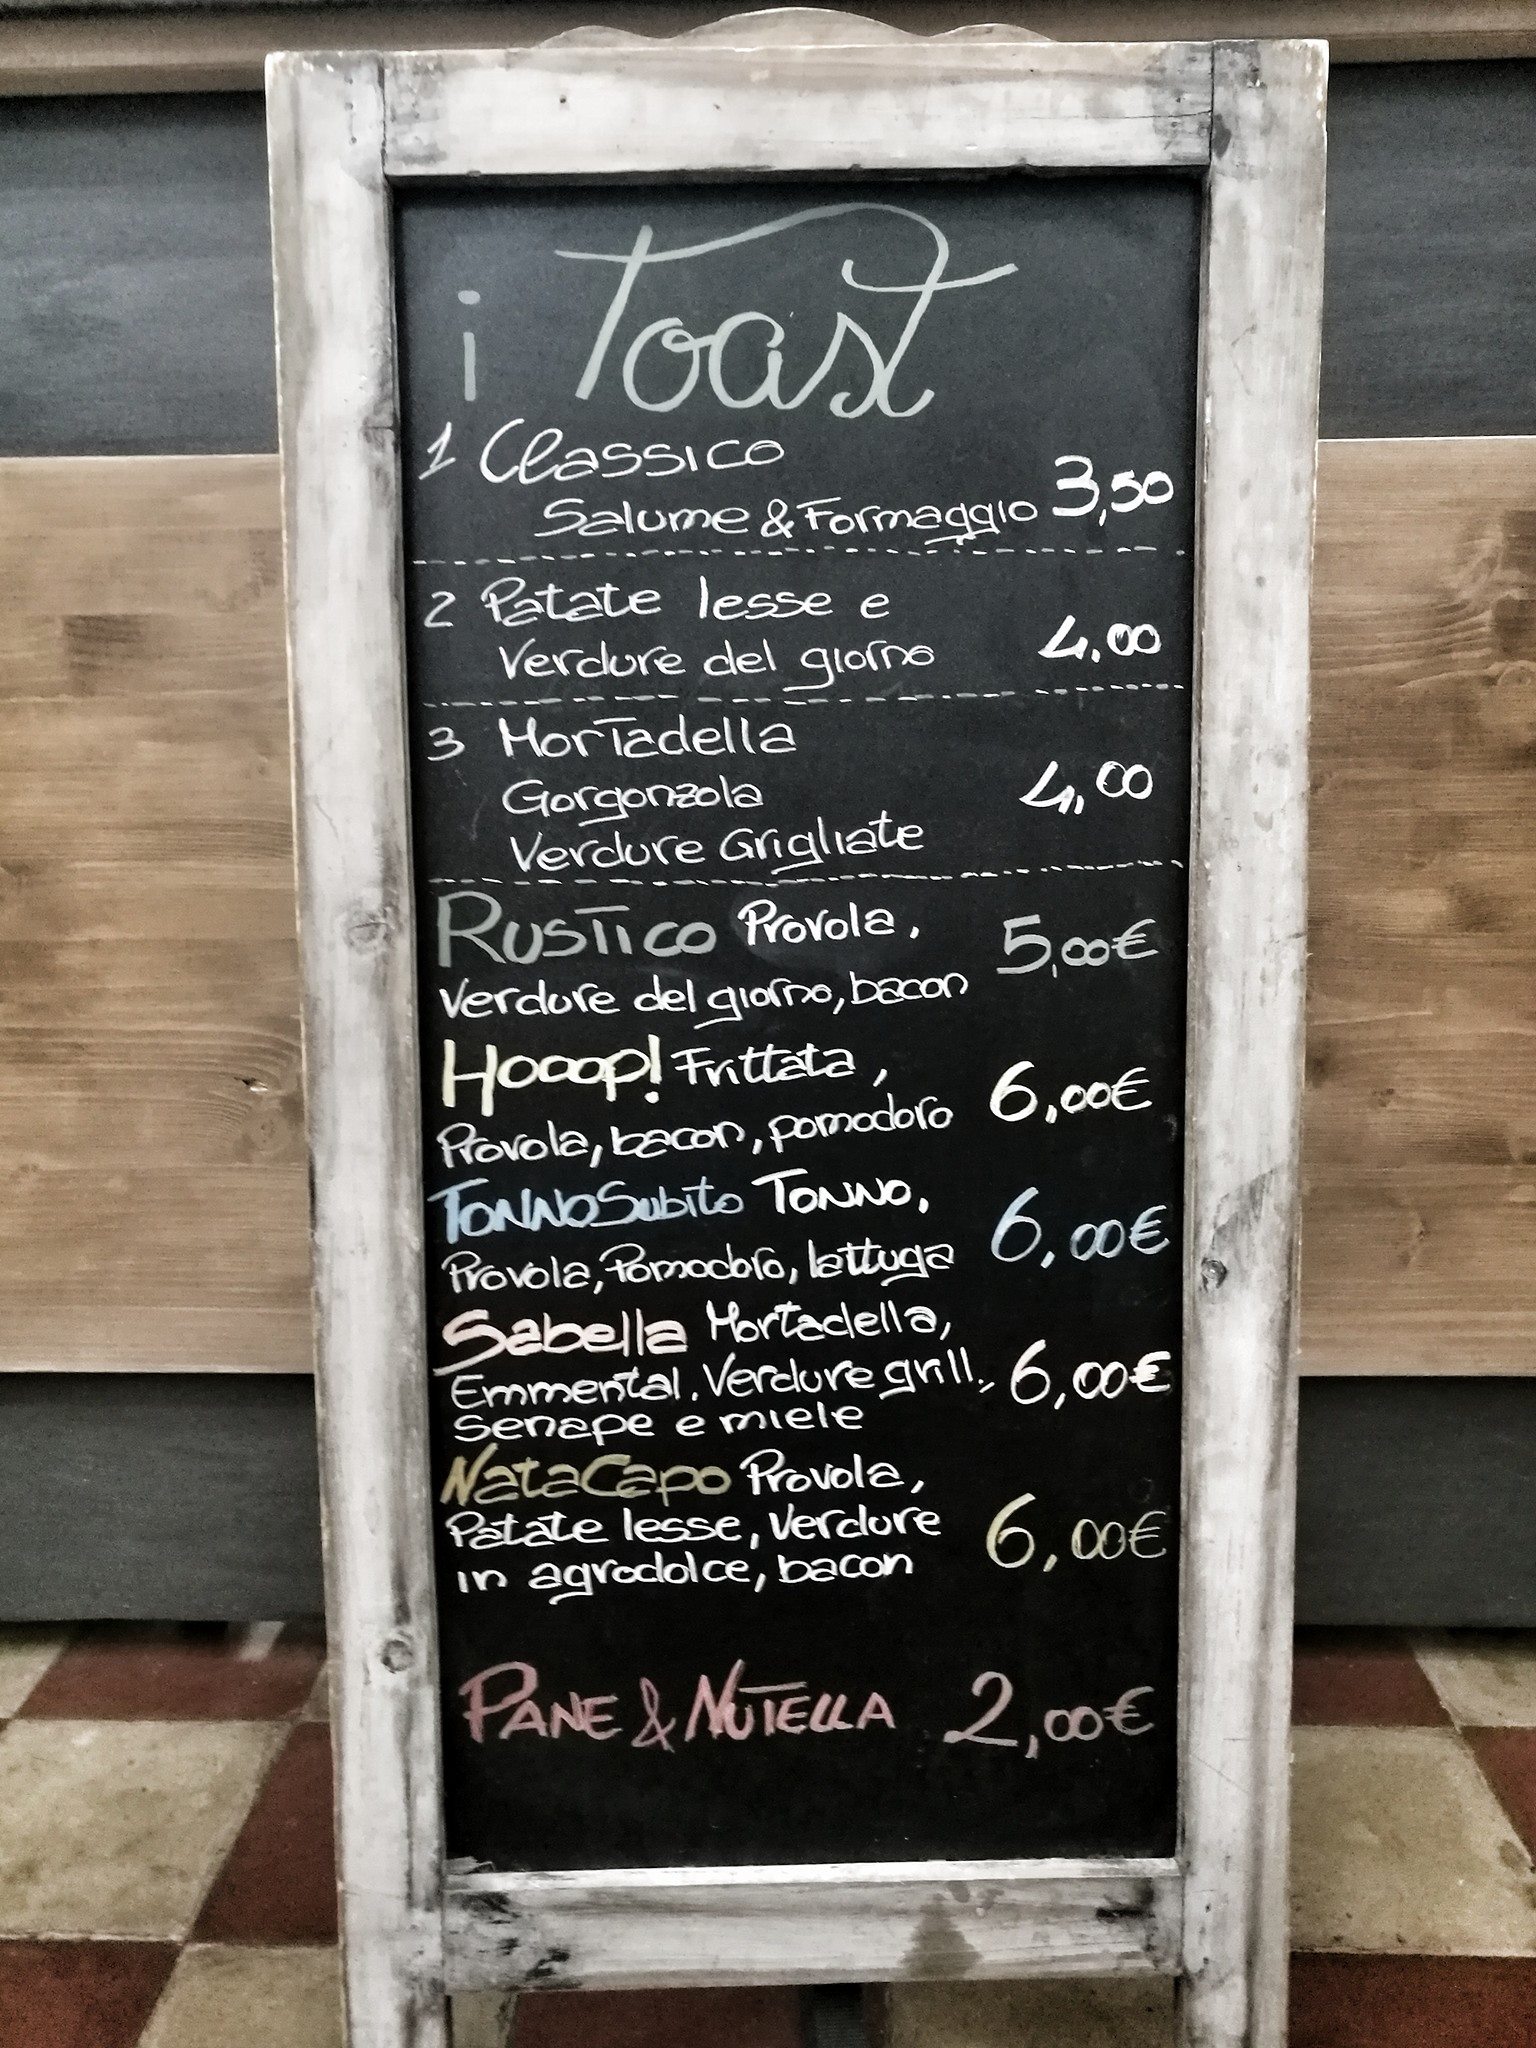 i Toast
1 Classico
Salume & Formaggio 3,50
2 Patate lesse e
Verdure del giorno 4,00
3 Mortadella
Gorgonzola 4,00
Verdure Grigliate
Rustico Provola, 5,00€
Verdure del giorno, bacon
Hooop! Frittata, 6,00€
Provola, bacon, pomodoro
TonnoSubito Tonno, 6,00€
Provola, Pomodoro, lattuga
Sabella Mortadella,
Emmental, Verdure grill., 6,00€
Senape e miele
NataCapo Provola,
Patate lesse, Verdure 6,00€
in agrodolce, bacon
PANE & NUTELLA 2,00€